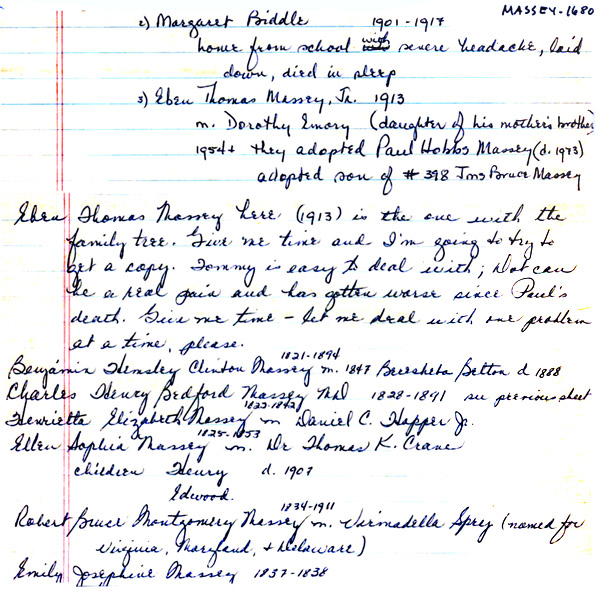 MASSEY-1680
2) Margaret Biddle 1901-1917
home from school with severe headache, laid
down, died in sleep
3) Eben Thomas Massey, Jr. 1913
m. Dorothy Emory (daughter of his mother's brother)
1954+ they adopted Paul Hobbs Massey (d. 1973)
adopted son of # 398 Jms Bruce Massey
Eben Thomas Massey here (1913) is the one with the
family tree. Give me time and I'm going to try to
get a copy. Tommy is easy to deal with; Dot can
be a real pain and has gotten worse since Paul's
death. Give me time - let me deal with one problem
at a time, please.
1821-1894
Benjamin Hemsley Clinton Massey m. 1847 Beersheba Betton d 1888
Charles Henry Bedford Massey MD 1828-1891 see previous sheet
1822-1842
Henrietta Elizabeth Massey m Daniel C. Happer Jr.
1825-1853
Ellen Sophia Massey m. Dr Thomas K. Crane
children Henry d. 1907
Edwood.
1834-1911
Robert Bruce Montgomery Massey m. Virmadella Spry (named for
Virginia, Maryland, + Delaware)
Emily Josephine Massey 1837-1838